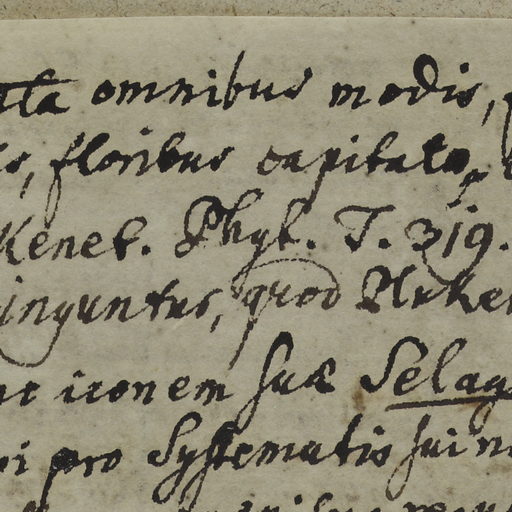 omnibus modis,
floribus capitato
Kenet. Phyt. T. 319.
inguntur, quod Plukenet
iconem suæ Selag
pro Systematis sui